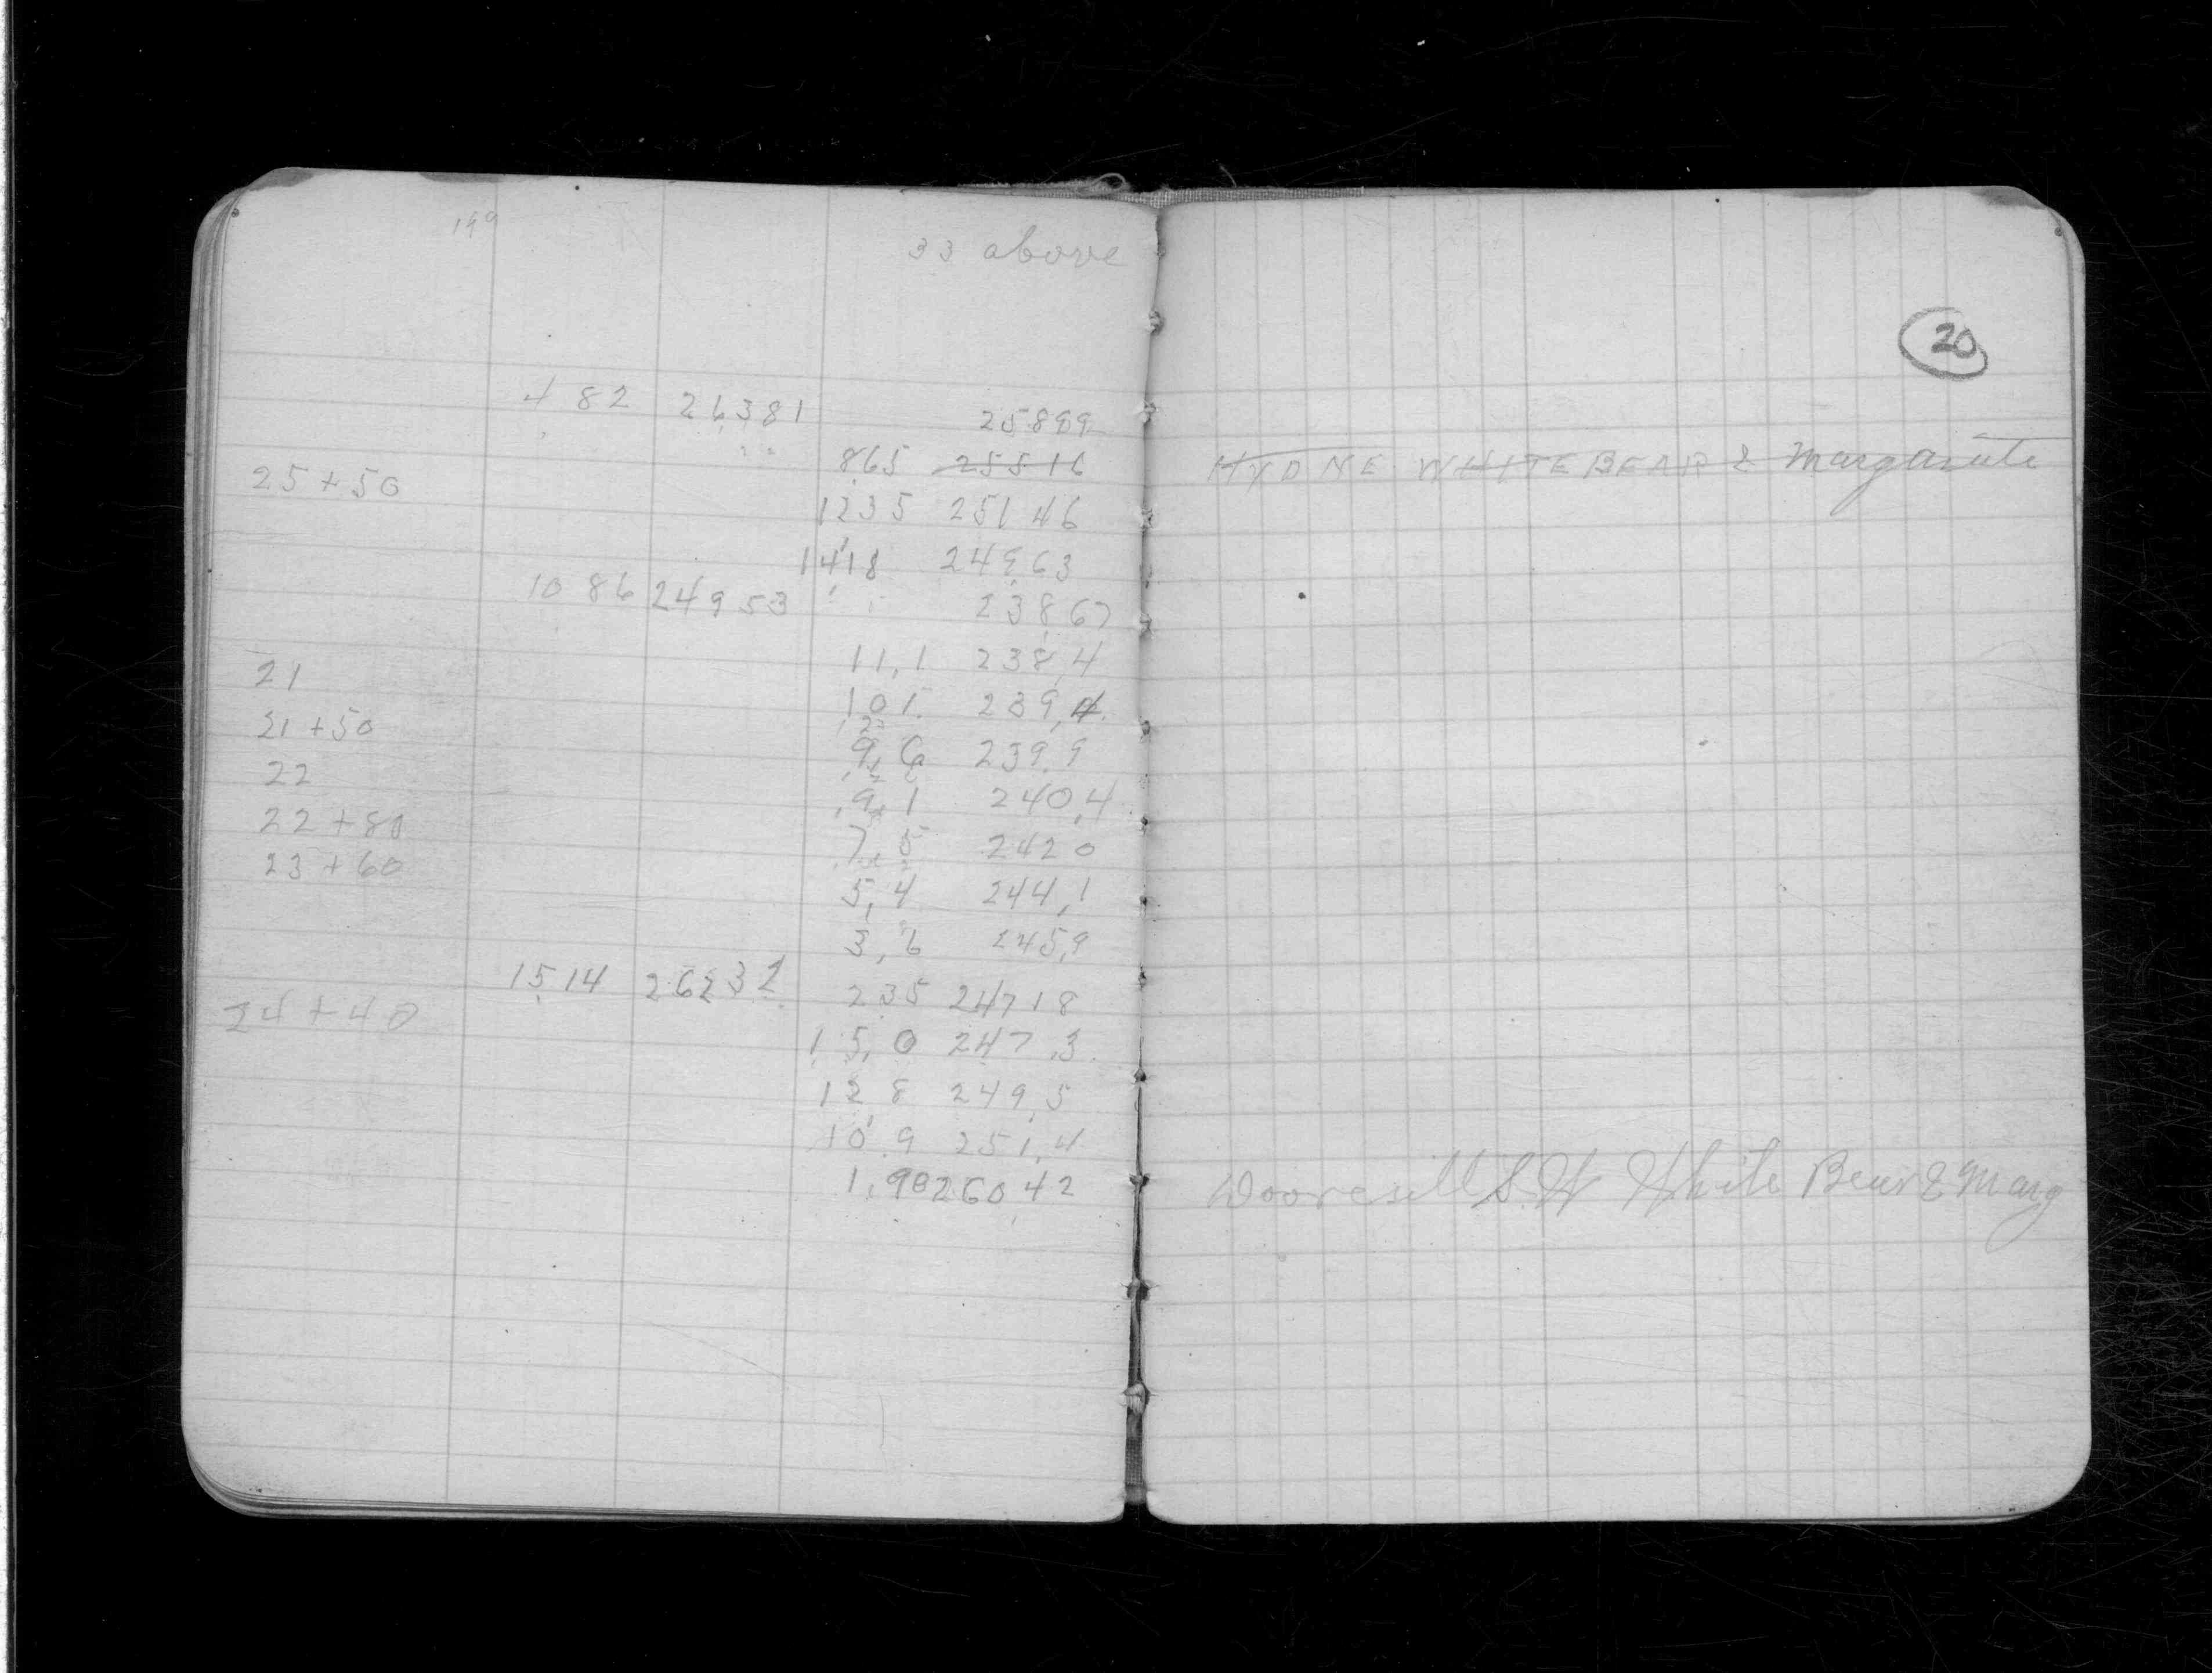 149
33 above
4 82 26,381 25899
865 25516
25+50
1235 25146
1418 24963
10 86 24953 23867
21 11,1 238,4
101 239,4
21+50 9,6 239,9
22 9,1 240,4
22+80 7,5 2420
23+60 5,4 244,1
3,6 245,9
1514 26232 235 24718
24+40
15,0 247,3
128 249,5
10,9 251,4
1,90 260,42
20
HYD NE WHITE BEAR & Margarute
Dooresill S.W White Bear & Marg